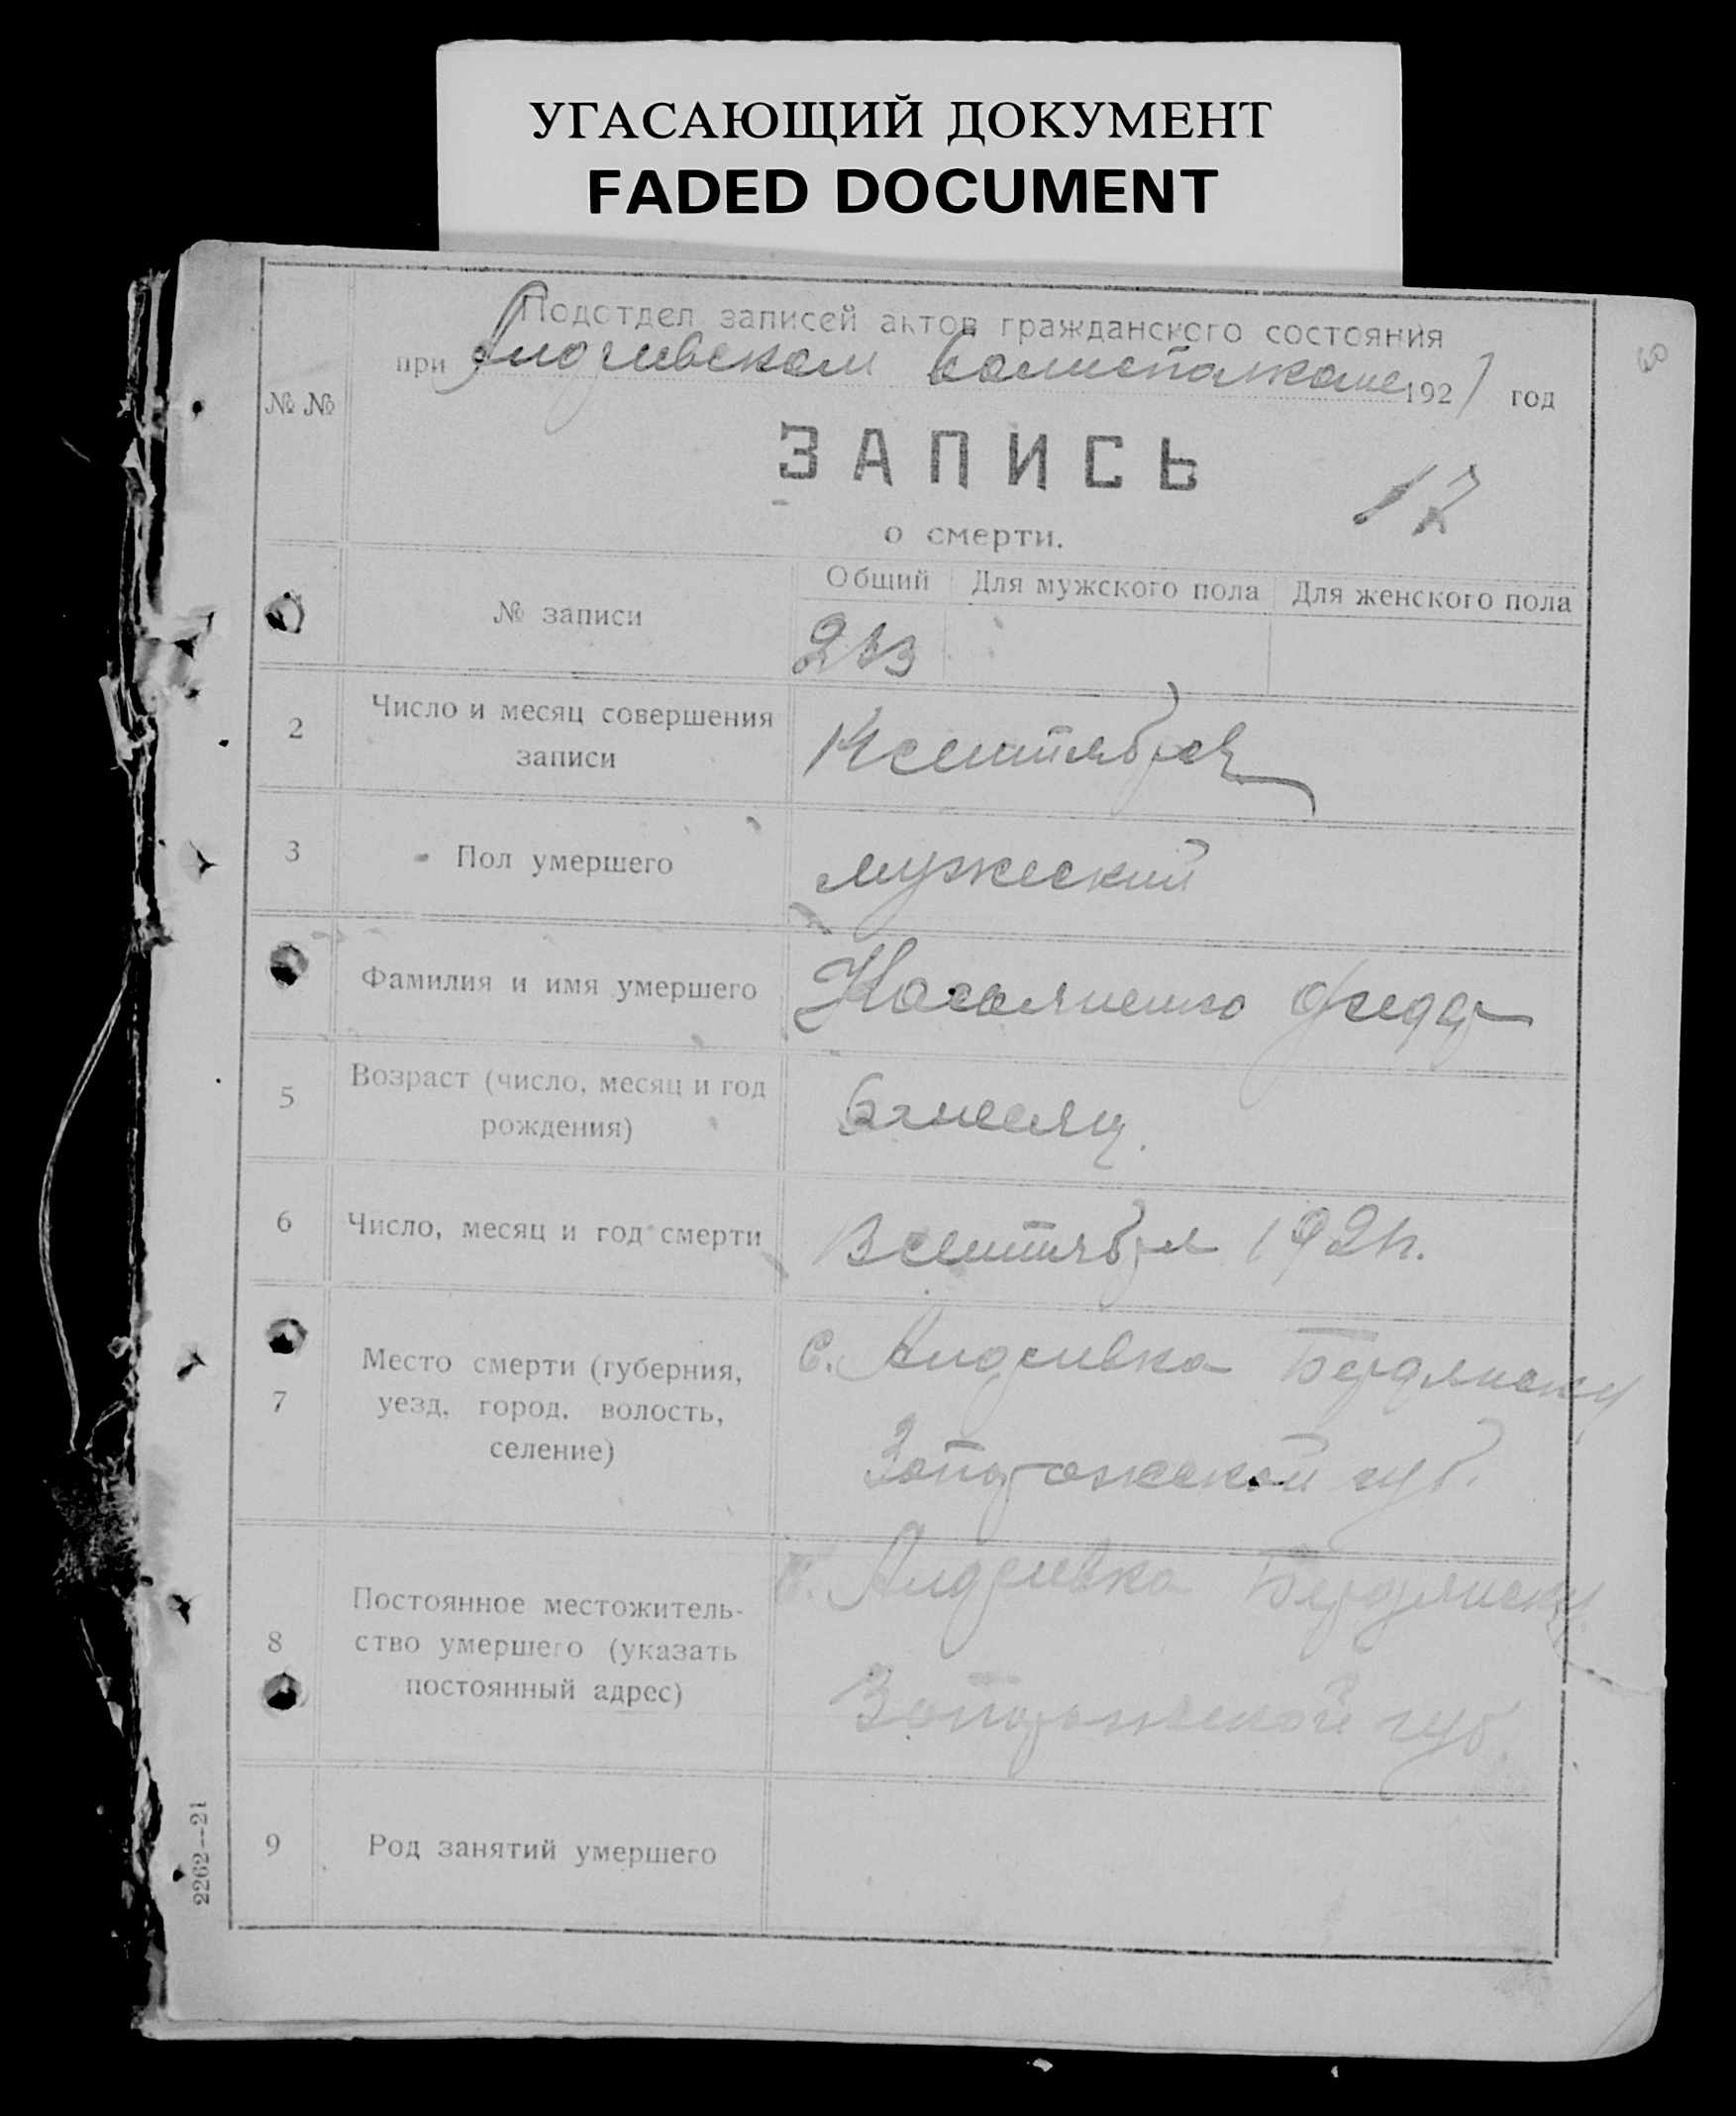 УГАСАЮЩИЙ ДОКУМЕНТ
FADED DOCUMENT
Подотдел записей актов гражданского состояния
при Андреевском 1921 год
№ №
ЗАПИСЬ
17
о смерти.
60
Общий Для мужского пола Для женского пола
№ записи
2
Число и месяц совершения
записи
14 сентября
3
Пол умершего
мужеский
Фамилия и имя умершего
Федор
5
Возраст (число, месяц и год
рождения)
6 месяц.
6
Число, месяц и год смерти
13 сентября 1921 г.
7
Место смерти (губерния,
уезд, город, волость,
селение)
с. Андреевка Бердянску
Запорожской губ.
8
Постоянное местожитель-
ство умершего (указать
постоянный адрес)
с. Андреевка Бердянску
Запорожской губ.
9
Род занятий умершего
2262--21